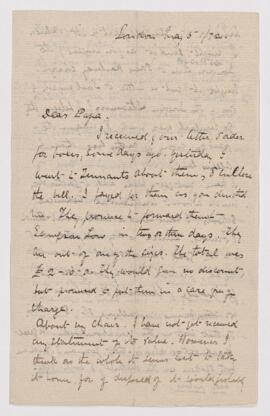 London May 5th 1872
Dear Papa.
I received your letter & order
for boxes, some days ago. Yesterday I
went to Tennants about them, I enclose
the bill. I payed for them as you directed
me. They promise to forward them
in two or three days. They
are out of one of the sizes. The total was
£2 They would give no discount,
but promised to put them in a case free of
charge.
About my Chair. I have not yet received
any statement of its value. However I
think on the whole it seems best to take
it home for if disposed of it would probably